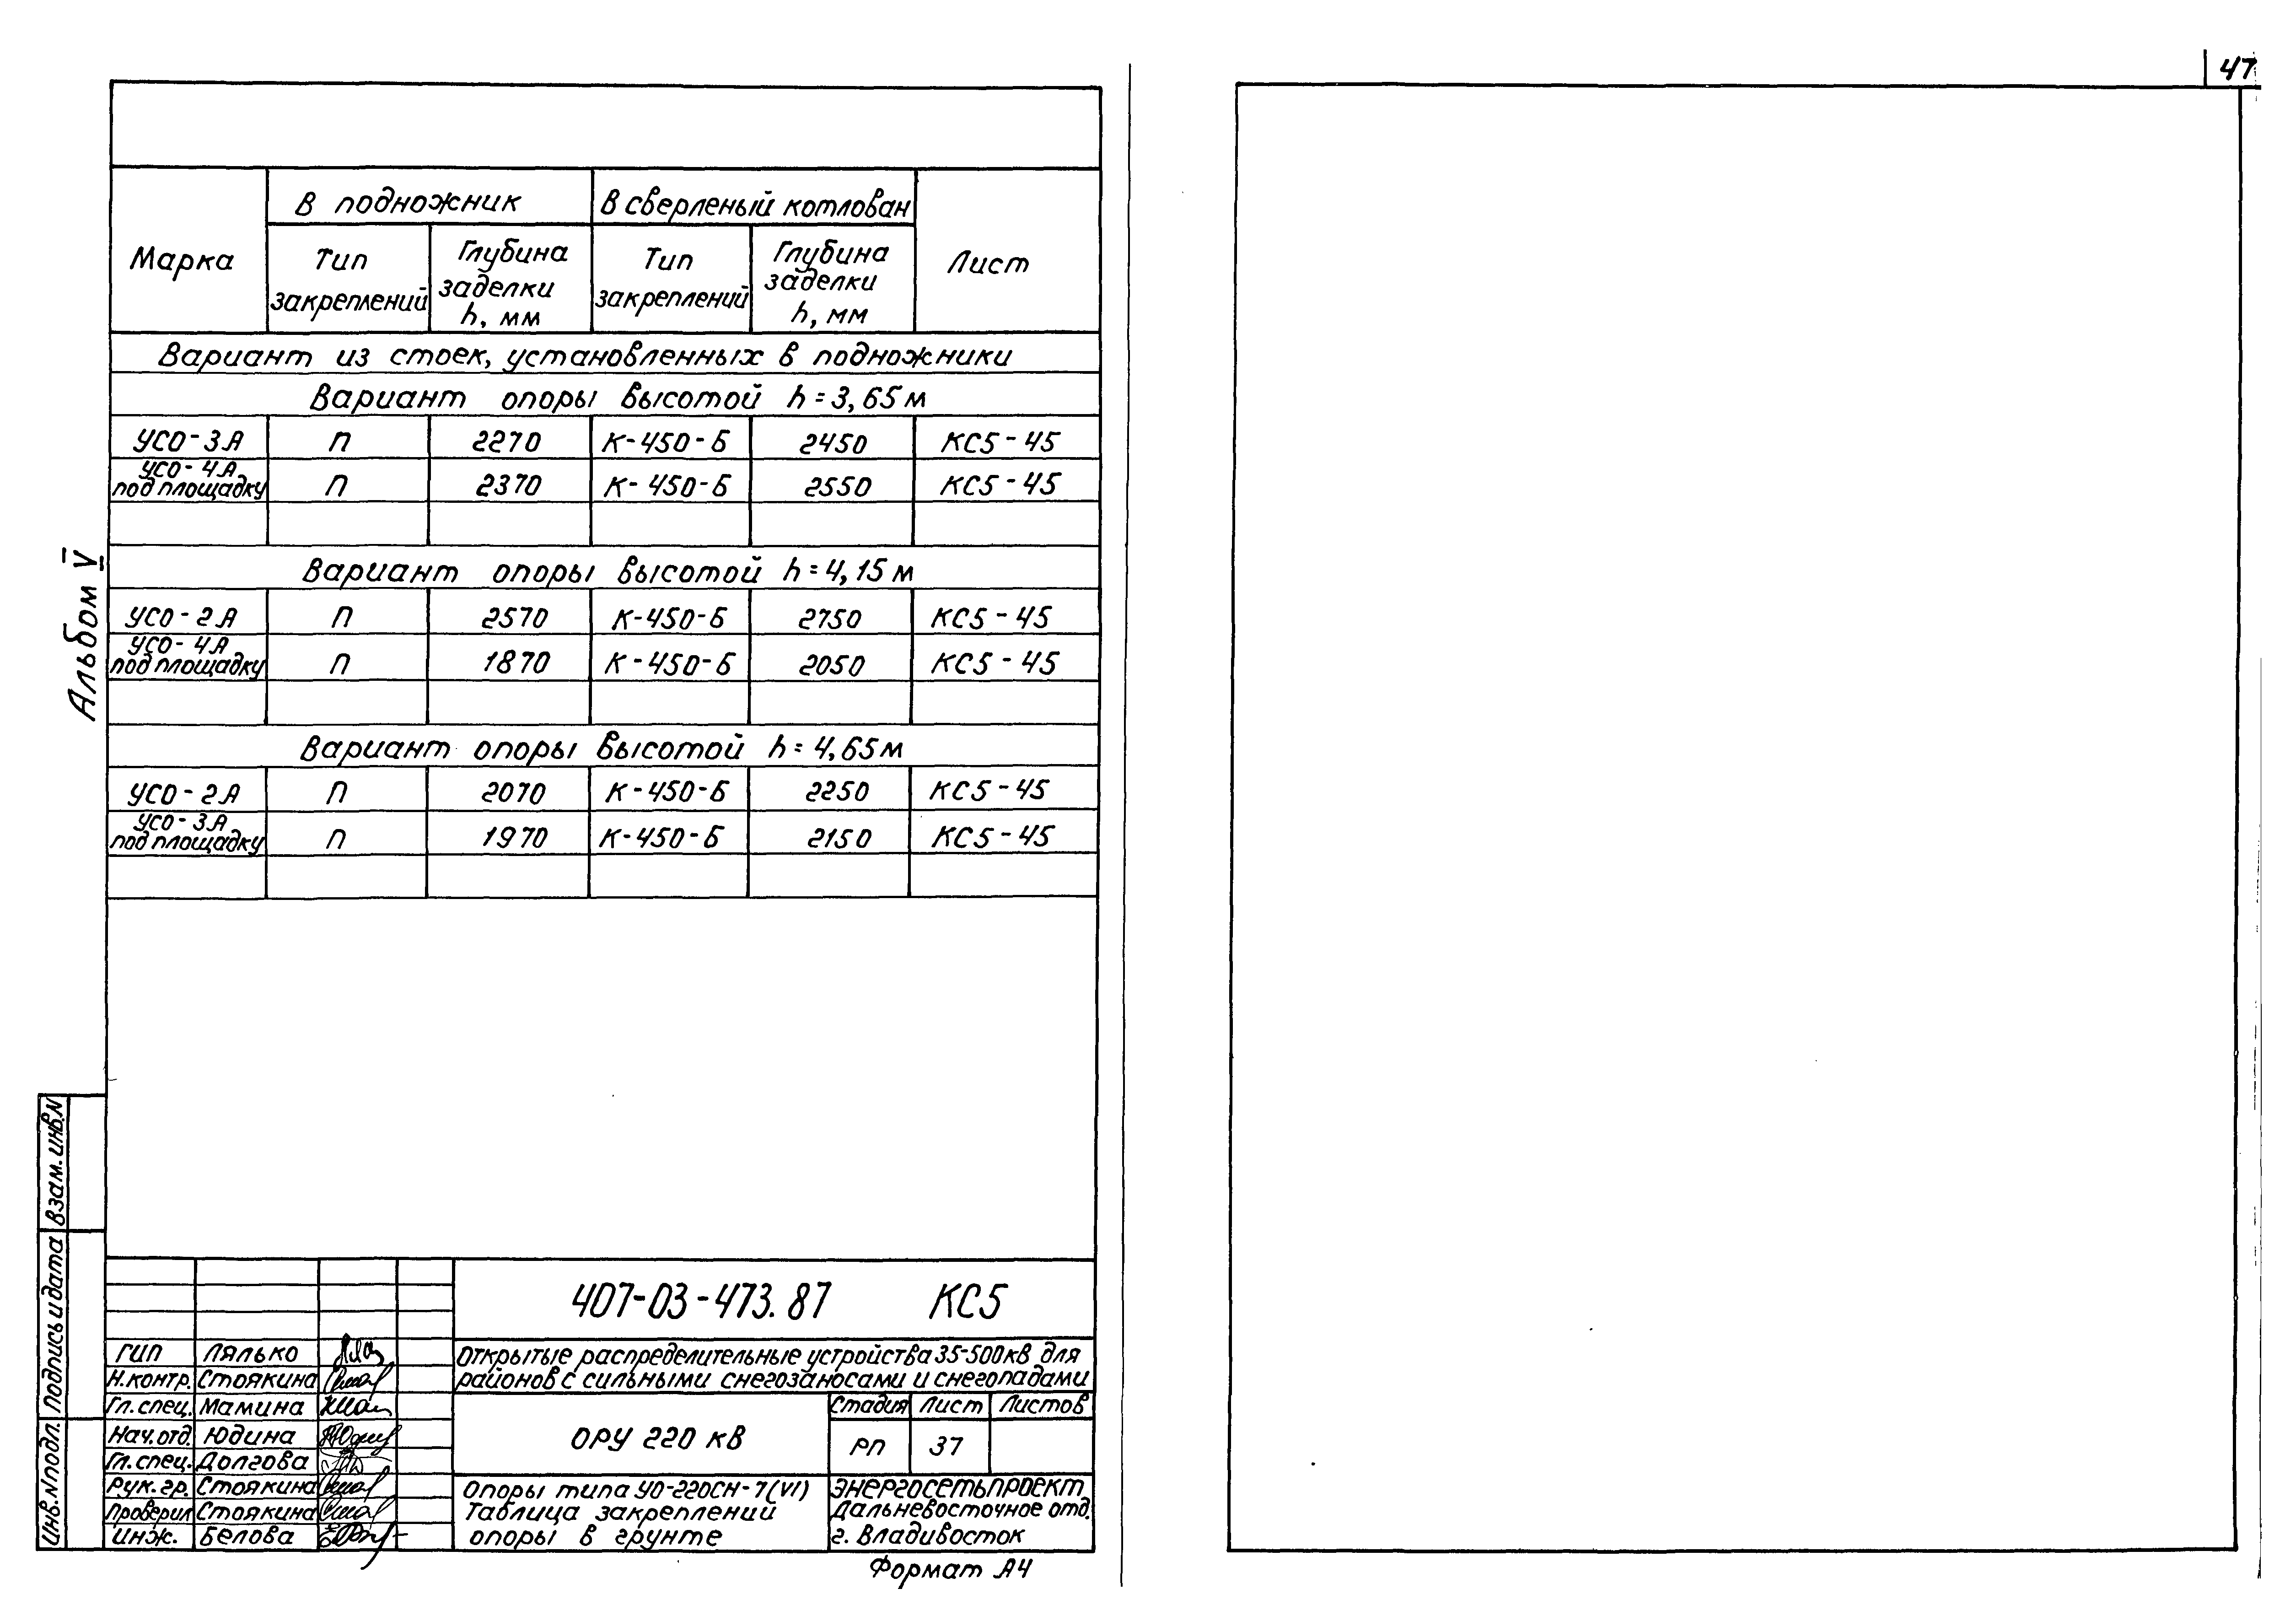 47
Альбом V
Марка
В подножник
В сверленый котлован
Лист
Тип закреплений
Глубина заделки h, мм
Тип закреплений
Глубина заделки h, мм
Вариант из стоек, установленных в подножники
Вариант опоры высотой h=3,65м
УСО-3А П 2270 К-450-Б 2450 КС5-45
УСО-4А под площадку П 2370 К-450-Б 2550 КС5-45
Вариант опоры высотой h=4,15м
УСО-2А П 2570 К-450-Б 2750 КС5-45
УСО-4А под площадку П 1870 К-450-Б 2050 КС5-45
Вариант опоры высотой h=4,65м
УСО-2А П 2070 К-450-Б 2250 КС5-45
УСО-3А под площадку П 1970 К-450-Б 2150 КС5-45
Взам. инв.N
Подпись и дата
Инв.N подл.
407-03-473.87 КС5
ГИП Лялько
Н.контр. Стоякина
Гл.спец. Мамина
Нач.отд. Юдина
Гл.спец. Долгова
Рук.гр. Стоякина
Проверил Стоякина
Инж. Белова
Открытые распределительные устройства 35-500кВ для
районов с сильными снегозаносами и снегопадами
ОРУ 220 кВ
Стадия Лист Листов
РП 37
Опоры типа УО-220СН-7(VI)
Таблица закреплений
опоры в грунте
Энергосетьпроект
Дальневосточное отд.
г. Владивосток
Формат А4